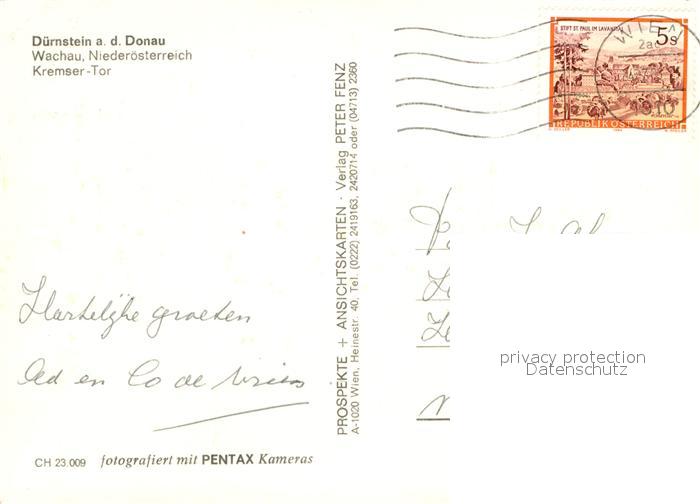 Dürnstein a. d. Donau
Wachau, Niederösterreich
Kremser-Tor
Hartelijke groeten
Ad en Co de Vries
CH 23.009 fotografiert mit PENTAX Kameras
PROSPEKTE + ANSICHTSKARTEN · Verlag PETER FENZ
A-1020 Wien, Heinestr. 40, Tel. (0222) 2419163, 2420714 oder (04713) 2360
STIFT ST. PAUL IM LAVANTTAL
5s
REPUBLIK ÖSTERREICH
WIEN
1010
privacy protection
Datenschutz